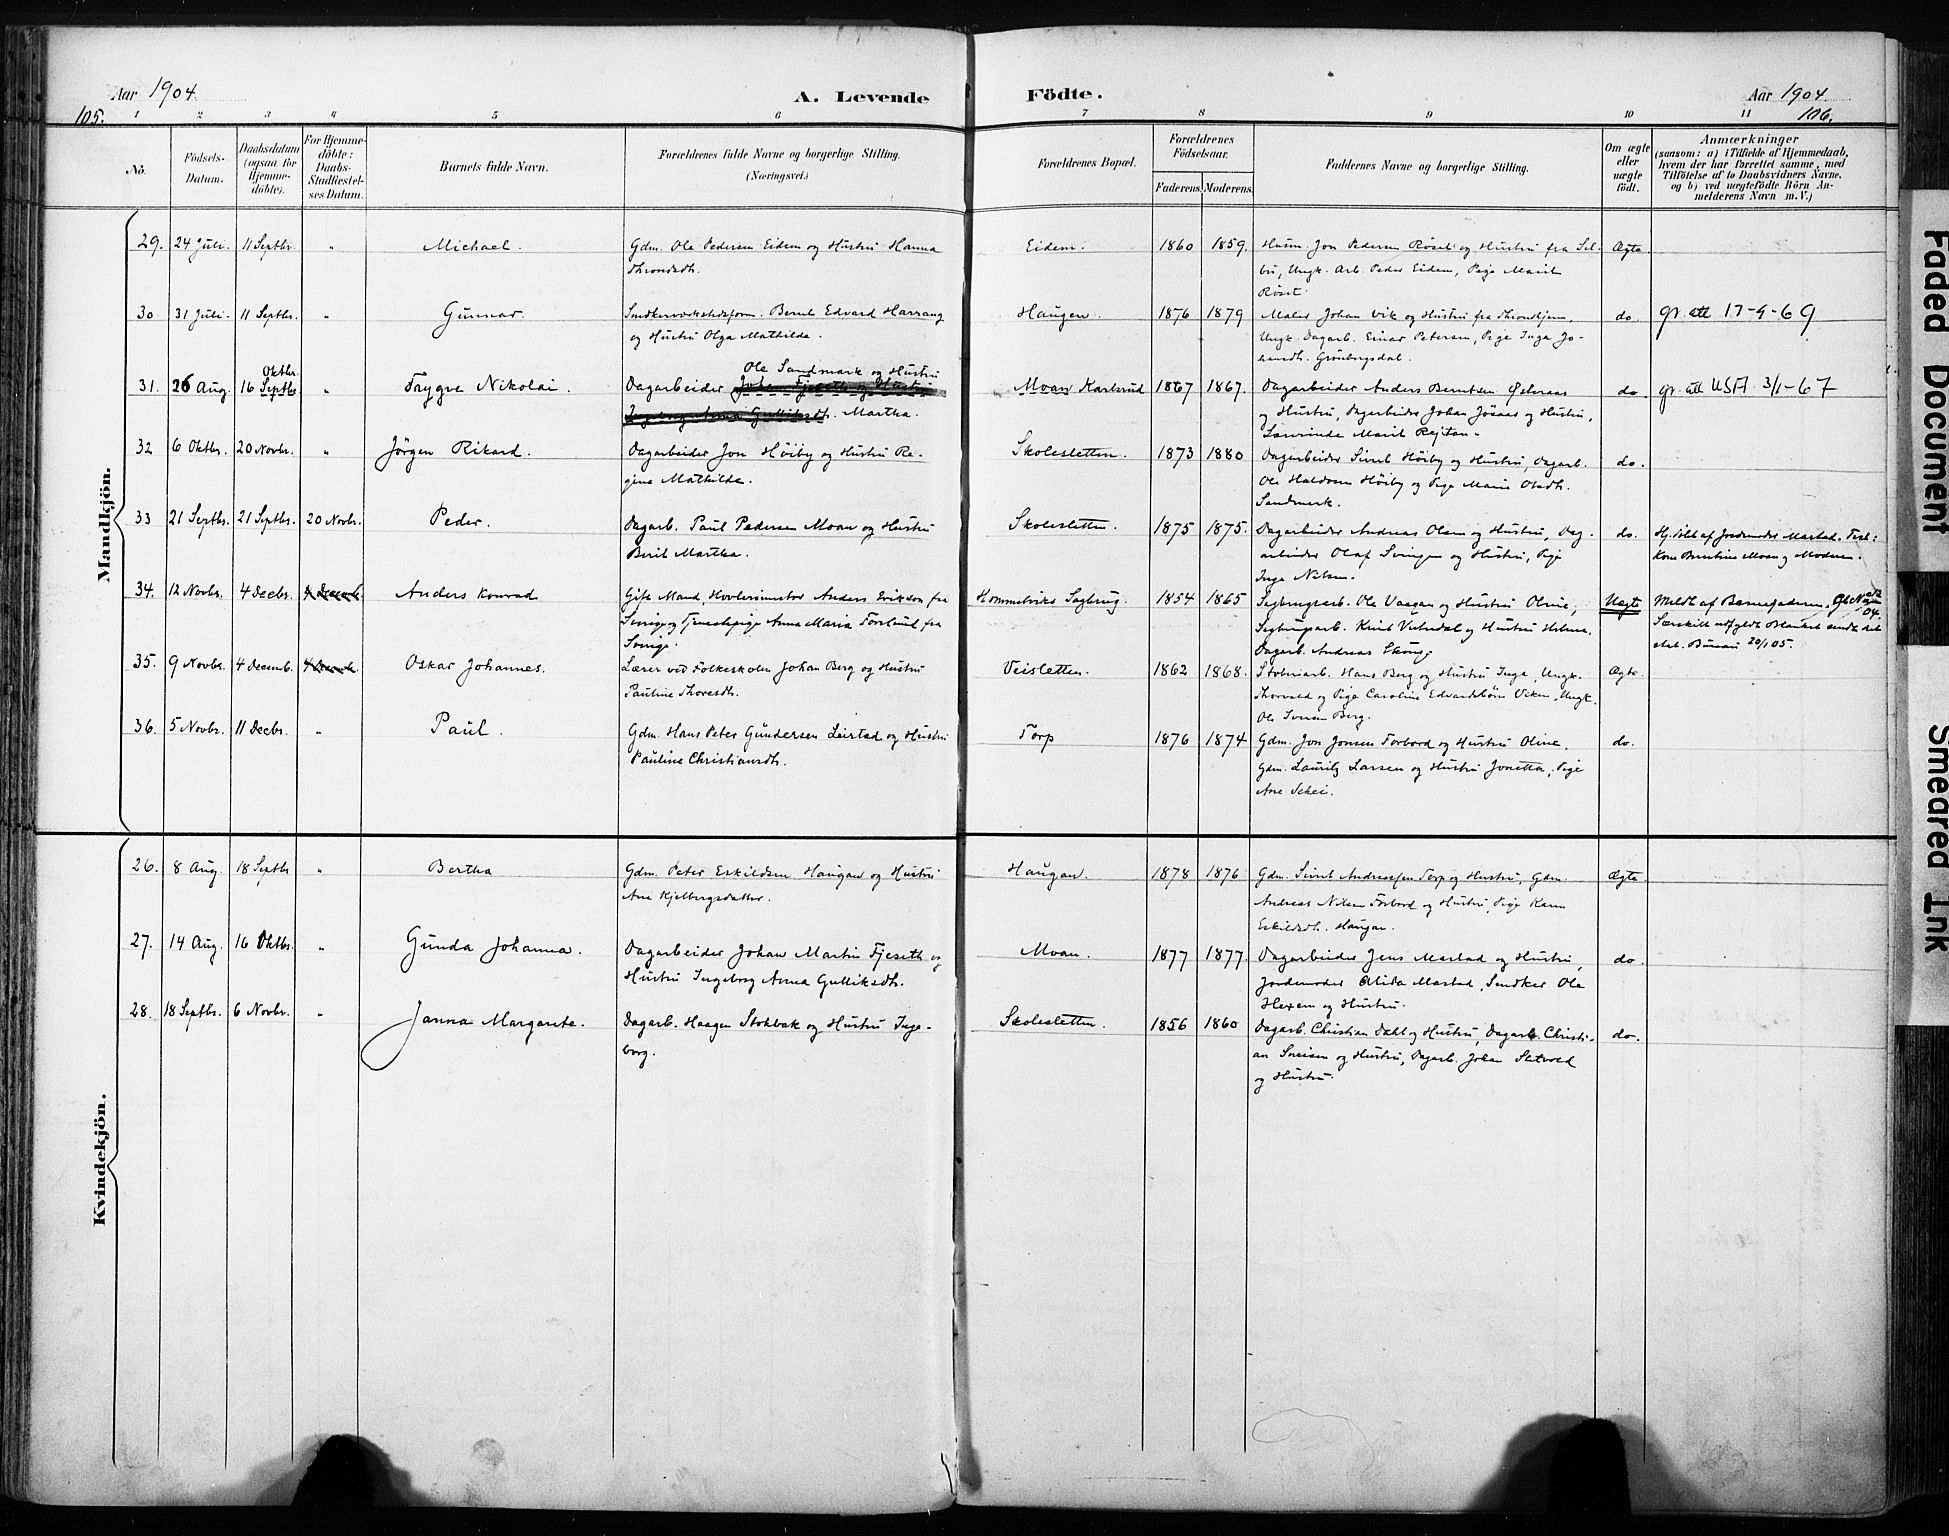 Aar 1904.
105.
A. Levende Födte.
Aar 1904.
106.
1 2 3 4 5 6 7 8 9 10 11
No.
Födsels-Datum.
Daabsdatum (ogsaa for Hjemme-döbte).
For Hjemme-döbte: Daabs-Stadfæstel-ses Datum.
Barnets fulde Navn.
Forældrenes fulde Navne og borgerlige Stilling.
(Næringsvei.)
Forældrenes Bopæl.
Forældrenes Födselsaar.
Faderens. Moderens.
Faddernes Navne og borgerlige Stilling.
Om ægte eller uægte födt.
Anmærkninger
(saasom: a) i Tilfælde af Hjemmedaab,
hvem der har forrettet samme, med
Tilföielse af to Daabsvidners Navne,
og b) ved uægtefödte Börn An-
melderens Navn m. V.)
Mandkjön.
29. 24 Juli. 11 Septbr. " Michael. Gdm. Ole Pedersen Eidem og Hustru Hanna Eidem. 1860 1859. Husm. Jon Pedersen Röset og Hustru fra Sel- Ægte
Throndsdt. bu, Ungk. Arb. Peder Eidem, Pige Marit
Röset.
30 31 Juli. 11 Septbr. " Gunnar. Bernt Edvard Harrang Haugen. 1876 1879 Maler Johan Vik og Hustru fra Throndhjem, do. gr. att 17-9-69
og Hustru Olga Mathilde. Ungk. Dagarb. Einar Petersen, Pige Inga Jo-
hansdt. Grönbergsdal.
Oktbr. Ole Sandmark og Hustru
31. 26 Aug. 16 Septbr. " Trygve Nikolai. Dagarbeider Johan Fjeseth og Hustru Moan Karlsrud 1867 1867. Dagarbeider Anders Berntsen og Hustru, Dagarbeider Johan og Hustru, do. gr. att USA 3/1-67
Ingeborg Anna Gulliksdt. Martha.
Marit Rejtan.
32 6 Oktbr. 20 Novbr. " Jörgen Rikard. Dagarbeider Jon Höiby og Hustru Re- Skolesletten. 1873 1880 Dagarbeider Sivert Höiby og Hustru, Dagarb. do.
gine Mathilde. Ole Haldosen Höiby og Pige Marie Olsdt.
Sandmerk.
33 21 Septbr. 21 Septbr. 20 Novbr. Peder. Dagarb. Paul Pedersen Moan og Hustru Skolesletten. 1875 1875. Dagarbeider Andreas Olsen og Hustru, Dag- do. Hj. döbt af Jordemoder Mastad.
Berit Martha. arbeider Olaf Svingen og Hustru, Pige Kone Berntine Moan og Moderen.
Inga Nilsen.
34. 12 Novbr. 4 Decbr. 4 Decemb. Anders Konrad Gift Mand, Hovlerimester Anders Erikson fra Hommelviks Sagbrug. 1854 1865 Sagbrugsarb. Ole Vaagan og Hustru Oline, Uægte Meldt af Barnefaderen.
Sverige og Tjenestepige Anna Maria Forslund fra Sagbrugsarb. Knut og Hustru Helena, 04. Særskilt udfyldt Blanket sendt det
Sverige. Dagarb. Andreas stat. Bureau 20/1 05.
35. 9 Novbr. 4 Decemb. 4 Decemb. Oskar Johannes. Lærer ved Folkeskolen Johan Berg og Hustru Veisletten. 1862 1868. Hans Berg og Hustru Inga, Ungk. Ægte.
Pauline Thoresdt. Thorvald og Pige Caroline Edvardsbörn Viken, Ungk.
Ole Berg.
36. 5 Novbr. 11 Decbr. " Paul. Gdm. Hans Peter Gundersen Leirtad og Hustru Torp 1876 1874 Gdm. Jon Jonsen Forbord og Hustru Oline, do.
Pauline Christiansdt. Gdm. Laurits Larsen og Hustru Jonetta, Pige
Ane Schei.
Kvindekjön.
26. 8 Aug. 18 Septbr " Bertha Gdm. Peter Eskildsen Haugan og Hustru Haugan 1878 1876 Gdm. Sivert Andreasen Torp og Hustru, Gdm. Ægte
Ane Kjelbergsdatter. Andreas Nilsen Forbord og Hustru, Pige Karen
Eskildsdt. Haugan.
27. 14 Aug. 16 Oktbr. " Gunda Johanna. Dagarbeider Johan Martin Fjeseth og Moan. 1877 1877. Dagarbeider Jens Mastad og Hustru, do.
Hustru Ingeborg Anna Gulliksdt. Jordemoder Alida Mastad, Snedker Ole
Hexem og Hustru.
28. 18 Septbr. 6 Novbr. " Janna Margareta. Dagarb. Haagen Stokbak og Hustru Inge- Skolesletten. 1856 1860 Dagarb. Christian Dahl og Hustru, Dagarb. Christi- do.
borg. an Sneisen og Hustru, Dagarb. Johan
og Hustru.
Faded Document
Smeared Ink